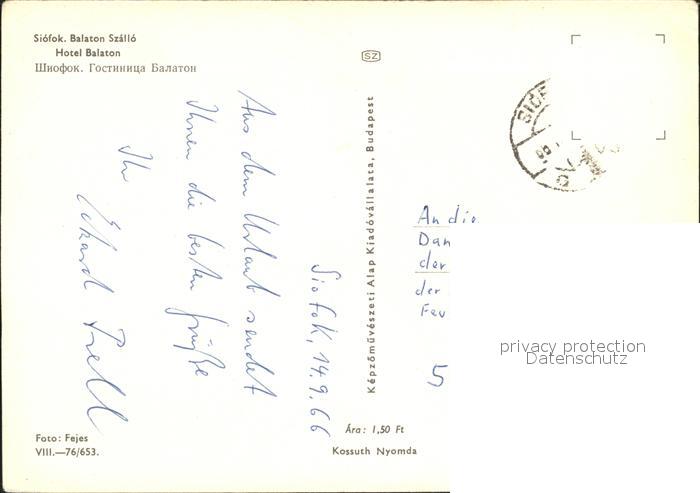 Siófok. Balaton Szálló
Hotel Balaton
Шиофок. Гостиница Балатон
SZ
Siofok, 14.9.66
Aus dem Urlaub sendet
Ihnen die besten Grüße
Ihr
Eckard Prell
Képzőművészeti Alap Kiadóvállalata, Budapest
SIOF
An die
Dan
der
der
Fev
5
privacy protection
Datenschutz
Foto: Fejes
VIII.—76/653.
Ára: 1,50 Ft
Kossuth Nyomda